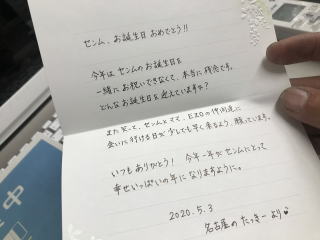 センム、お誕生日 おめでとう!!
今年は センムのお誕生日を
一緒にお祝いできなくて、本当に残念です。
どんなお誕生日を迎えていますか?
また笑って、センムとママ、EXOの仲間達に
会いに行ける日が少しでも早く来るよう、願っています。
いつもありがとう! 今年一年がセンムにとって
幸せいっぱいの年になりますように。
2020.5.3
名古屋のたっきーより
中